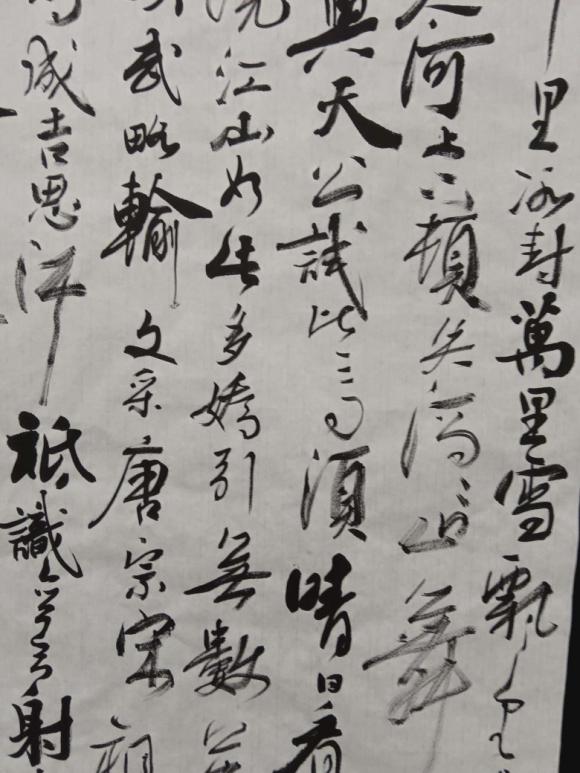 里冰封萬里雪飄
河上下頓失滔〻山舞
與天公試比高須晴日看
江山如此多嬌引無數
武略輸文采唐宗宋
成吉思汗祇識彎弓射